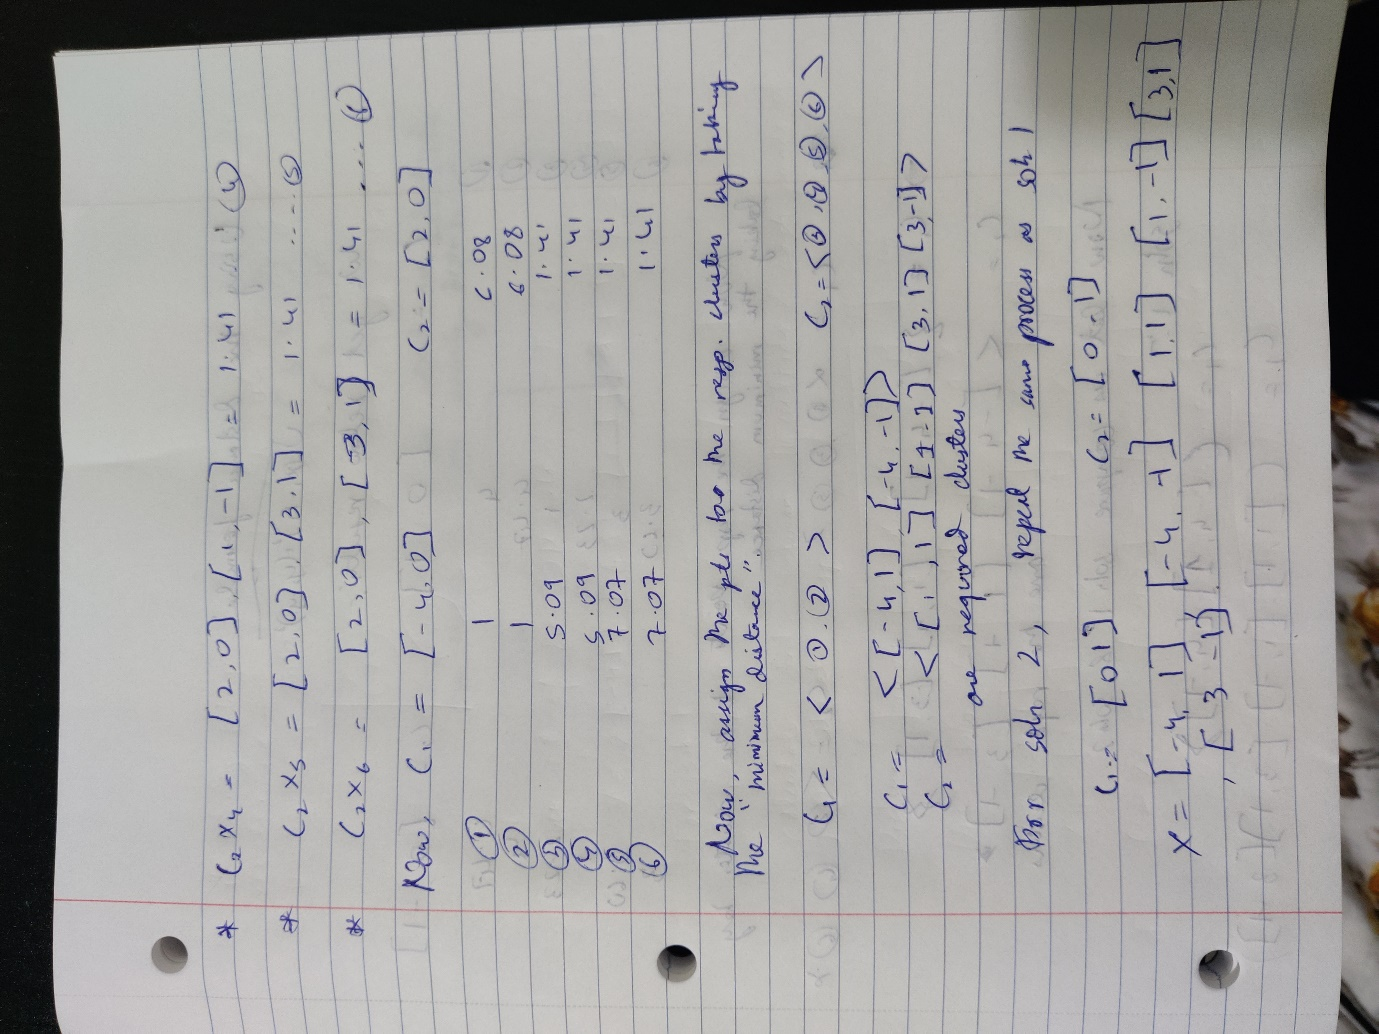 * C₂X₄ = [2,0],[1,-1] = 1.41 (4)
* C₂X₅ = [2,0],[3,1] = 1.41 ....(5)
* C₂X₆ = [2,0],[-3,1] = 1.41 ....(6)
Now, C₁ = [-4,0] C₂ = [2,0]
① 1 6.08
② 1 6.08
③ 5.09 1.41
④ 5.09 1.41
⑤ 7.07 1.41
⑥ 7.07 1.41
Now, assign the pts too the resp. clusters by taking
the "minimum distance".
C₁ = < ①.② > C₂ = <③,④,⑤,⑥>
C₁ = <[-4,1],[-4,-1]>
C₂ = <[1,1] [1-1] [3,1] [3,-1]>
are required clusters
For soln 2, repeat the same process as soln 1
C₁ = [0 1] C₂ = [0 -1]
X = [-4, 1] [-4, -1] [1,1] [1,-1] [3,1]
, [3 -1]